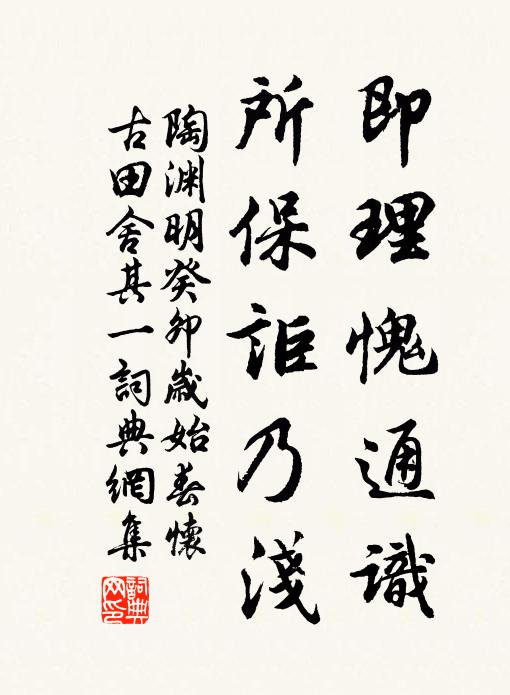 即理愧通識
所保詎乃淺
陶渊明癸卯歲始春懷
古田舍其一詞典網集
詞典网印